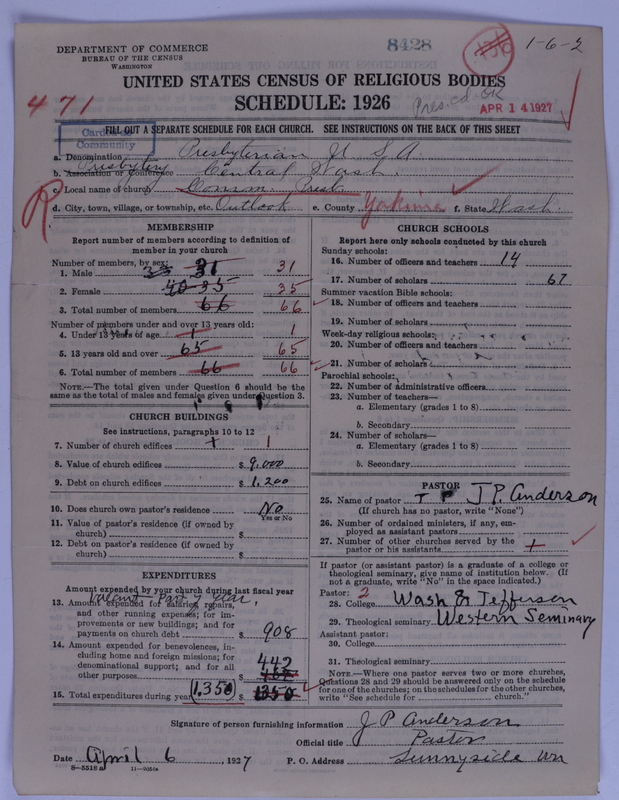 DEPARTMENT OF COMMERCE
BUREAU OF THE CENSUS
WASHINGTON
8428
1-6-2
UNITED STATES CENSUS OF RELIGIOUS BODIES
SCHEDULE: 1926
471
Pres. cd. OK
APR 14 1927
FILL OUT A SEPARATE SCHEDULE FOR EACH CHURCH. SEE INSTRUCTIONS ON THE BACK OF THIS SHEET
Carded as
Community
a. Denomination Presbyterian U S A.
Presbytery
b. Association or Conference Central Wash.
c. Local name of church Comm. Presb.
d. City, town, village, or township, etc. Outlook e. County Yakima f. State Wash.
R
MEMBERSHIP
Report number of members according to definition of
member in your church
Number of members, by sex:
1. Male 31 31
2. Female 40 35 35
3. Total number of members 66 66
Number of members under and over 13 years old:
4. Under 13 years of age 1 1
5. 13 years old and over 65 65
6. Total number of members 66 66
NOTE.—The total given under Question 6 should be the
same as the total of males and females given under Question 3.
CHURCH BUILDINGS
See instructions, paragraphs 10 to 12
7. Number of church edifices 1 1
8. Value of church edifices $ 9,000
9. Debt on church edifices $ 1,200
10. Does church own pastor's residence? No
Yes or No
11. Value of pastor's residence (if owned by
church) $
12. Debt on pastor's residence (if owned by
church) $
EXPENDITURES
Amount expended by your church during last fiscal year
Vacant Part of Year,
13. Amount expended for salaries, repairs,
and other running expenses; for im-
provements or new buildings; and for
payments on church debt $ 908
14. Amount expended for benevolences, in-
cluding home and foreign missions; for
denominational support; and for all
other purposes 442
15. Total expenditures during year 1,350 $ 1350
CHURCH SCHOOLS
Report here only schools conducted by this church
Sunday schools:
16. Number of officers and teachers 14
17. Number of scholars 67
Summer vacation Bible schools:
18. Number of officers and teachers
19. Number of scholars
Week-day religious schools:
20. Number of officers and teachers
21. Number of scholars
Parochial schools:
22. Number of administrative officers
23. Number of teachers—
a. Elementary (grades 1 to 8)
b. Secondary
24. Number of scholars—
a. Elementary (grades 1 to 8)
b. Secondary
PASTOR
25. Name of pastor J P. Anderson
(If church has no pastor, write "None")
26. Number of ordained ministers, if any, em-
ployed as assistant pastors
27. Number of other churches served by the
pastor or his assistants 1
If pastor (or assistant pastor) is a graduate of a college or
theological seminary, give name of institution below. (If
not a graduate, write "No" in the space indicated.)
Pastor: 2
28. College Wash & Jefferson
29. Theological seminary Western Seminary
Assistant pastor:
30. College
31. Theological seminary
NOTE.—Where one pastor serves two or more churches,
Questions 28 and 29 should be answered only on the schedule
for one of the churches; on the schedules for the other churches,
write "See schedule for church."
Signature of person furnishing information J P Anderson
Official title Pastor
Date April 6, 1927 P. O. Address Sunnyside Wn
8—5518a 11—9024a